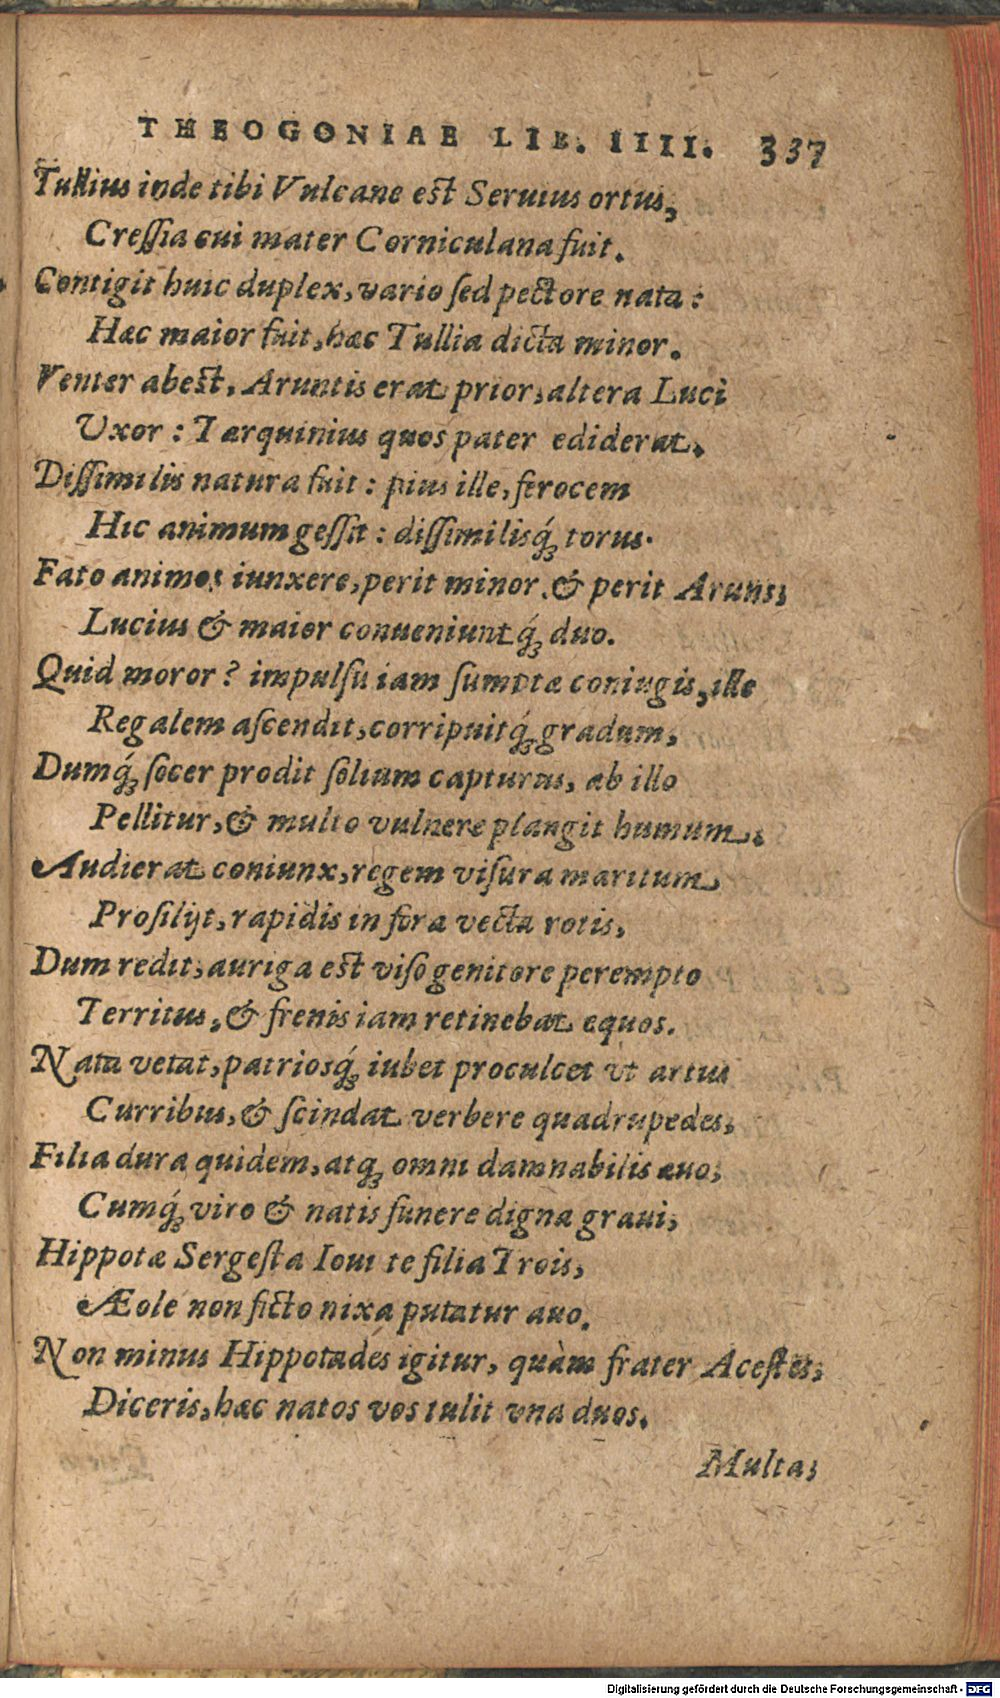 THEOGONIAE LIB. IIII. 337
Tullius inde tibi Vulcane est Seruius ortus,
Cressia cui mater Corniculana fuit.
Contigit huic duplex, vario sed pectore nata:
Hæc maior fuit, hæc Tullia dicta minor.
Venter abest, Aruntis erat prior, altera Luci
Vxor: Tarquinius quos pater ediderat.
Dissimilis natura fuit: pius ille, ferocem
Hic animum gessit: dissimilisq́; torus.
Fato animos iunxere, perit minor & perit Aruns;
Lucius & maior conueniuntq́; duo.
Quid moror? impulsu iam sumptæ coniugis, ille
Regalem ascendit, corripuitq́; gradum,
Dumq́; socer prodit solium capturus, ab illo
Pellitur, & multo vulnere plangit humum.
Audierat coniunx, regem visura maritum,
Prosilijt, rapidis in fora vecta rotis,
Dum redit, auriga est viso genitore perempto
Territus, & frenis iam retinebat equos.
Nata vetat, patriosq́; iubet proculcet vt artus
Curribus, & scindat verbere quadrupedes,
Filia dura quidem, atq; omni damnabilis æuo,
Cumq́; viro & natis funere digna graui,
Hippotæ Sergesta Ioui te filia Trois,
Æole non ficto nixa putatur auo.
Non minus Hippotádes igitur, quàm frater Acestes,
Diceris, hæc natos vos tulit vna duos.
Multa;
Digitalisierung gefördert durch die Deutsche Forschungsgemeinschaft - DFG